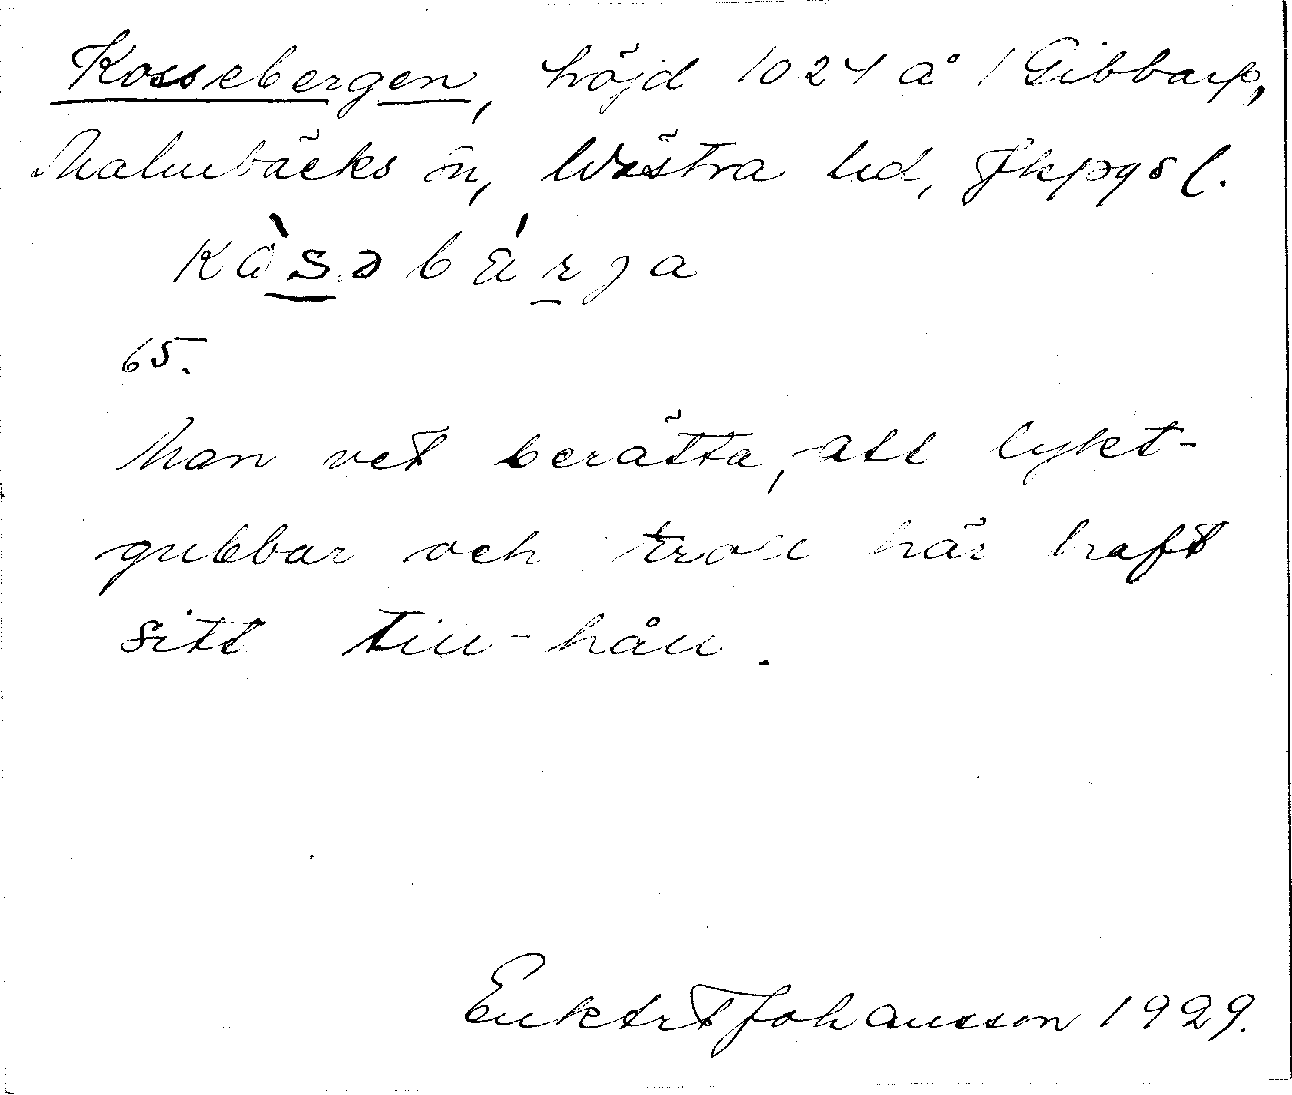 Kossebergen, höjd 1024 å 1 Gibbarp,
Malmbäcks sn, Västra hd, Jkpgs l.
kòsəbä́rja
65.
Man vet berätta, att lykt-
gubbar och troll här haft
sitt till-håll.
Johansson 1929.